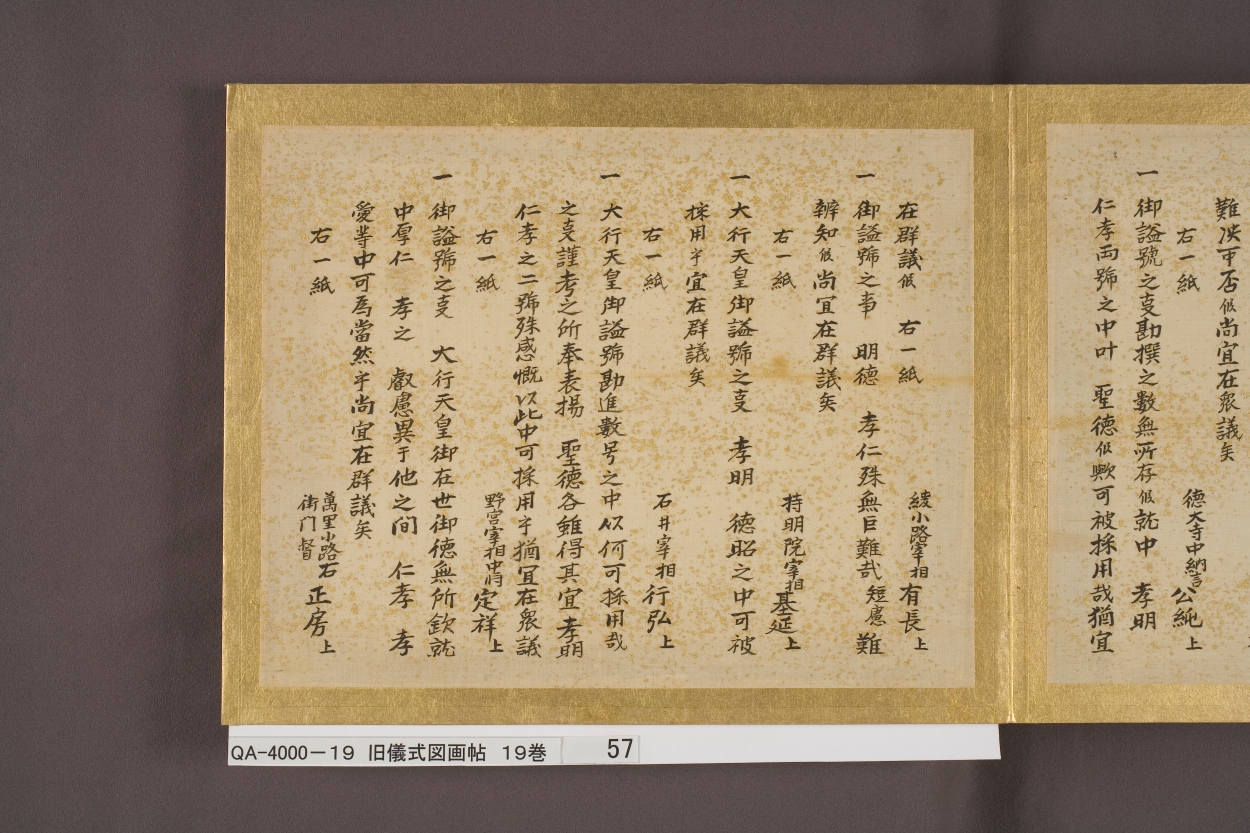 難決可否候尚宜在衆議矣
右一紙
徳大寺中納言公純上
一 御謚號之叓勘撰之數無所存候就中 孝明
仁孝両號之中叶 聖徳候歟可被採用哉猶宜
在群議候 右一紙
綾小路宰相有長上
一 御謚號之事 明徳 孝仁殊無巨難哉短慮難
辨知候尚宜在群議矣
右一紙
持明院宰相基延上
一 大行天皇御謚號之叓 孝明 徳昭之中可被
採用乎宜在群議矣
右一紙
石井宰相行弘上
一 大行天皇御謚號勘進數号之中以何可採用哉
之叓謹考之所奉表揚 聖徳各雖得其宜孝明
仁孝之二號殊感慨以此中可採用乎猶宜在衆議
右一紙
野宮宰相中将定祥上
一 御謚號之叓 大行天皇御在世御徳無所欽就
中厚仁 孝之 叡慮異于他之間 仁孝 孝
愛等中可為當然乎尚宜在群議矣
右一紙
萬里小路右衛門督正房上
QA-4000-19 旧儀式図画帖 19巻 57